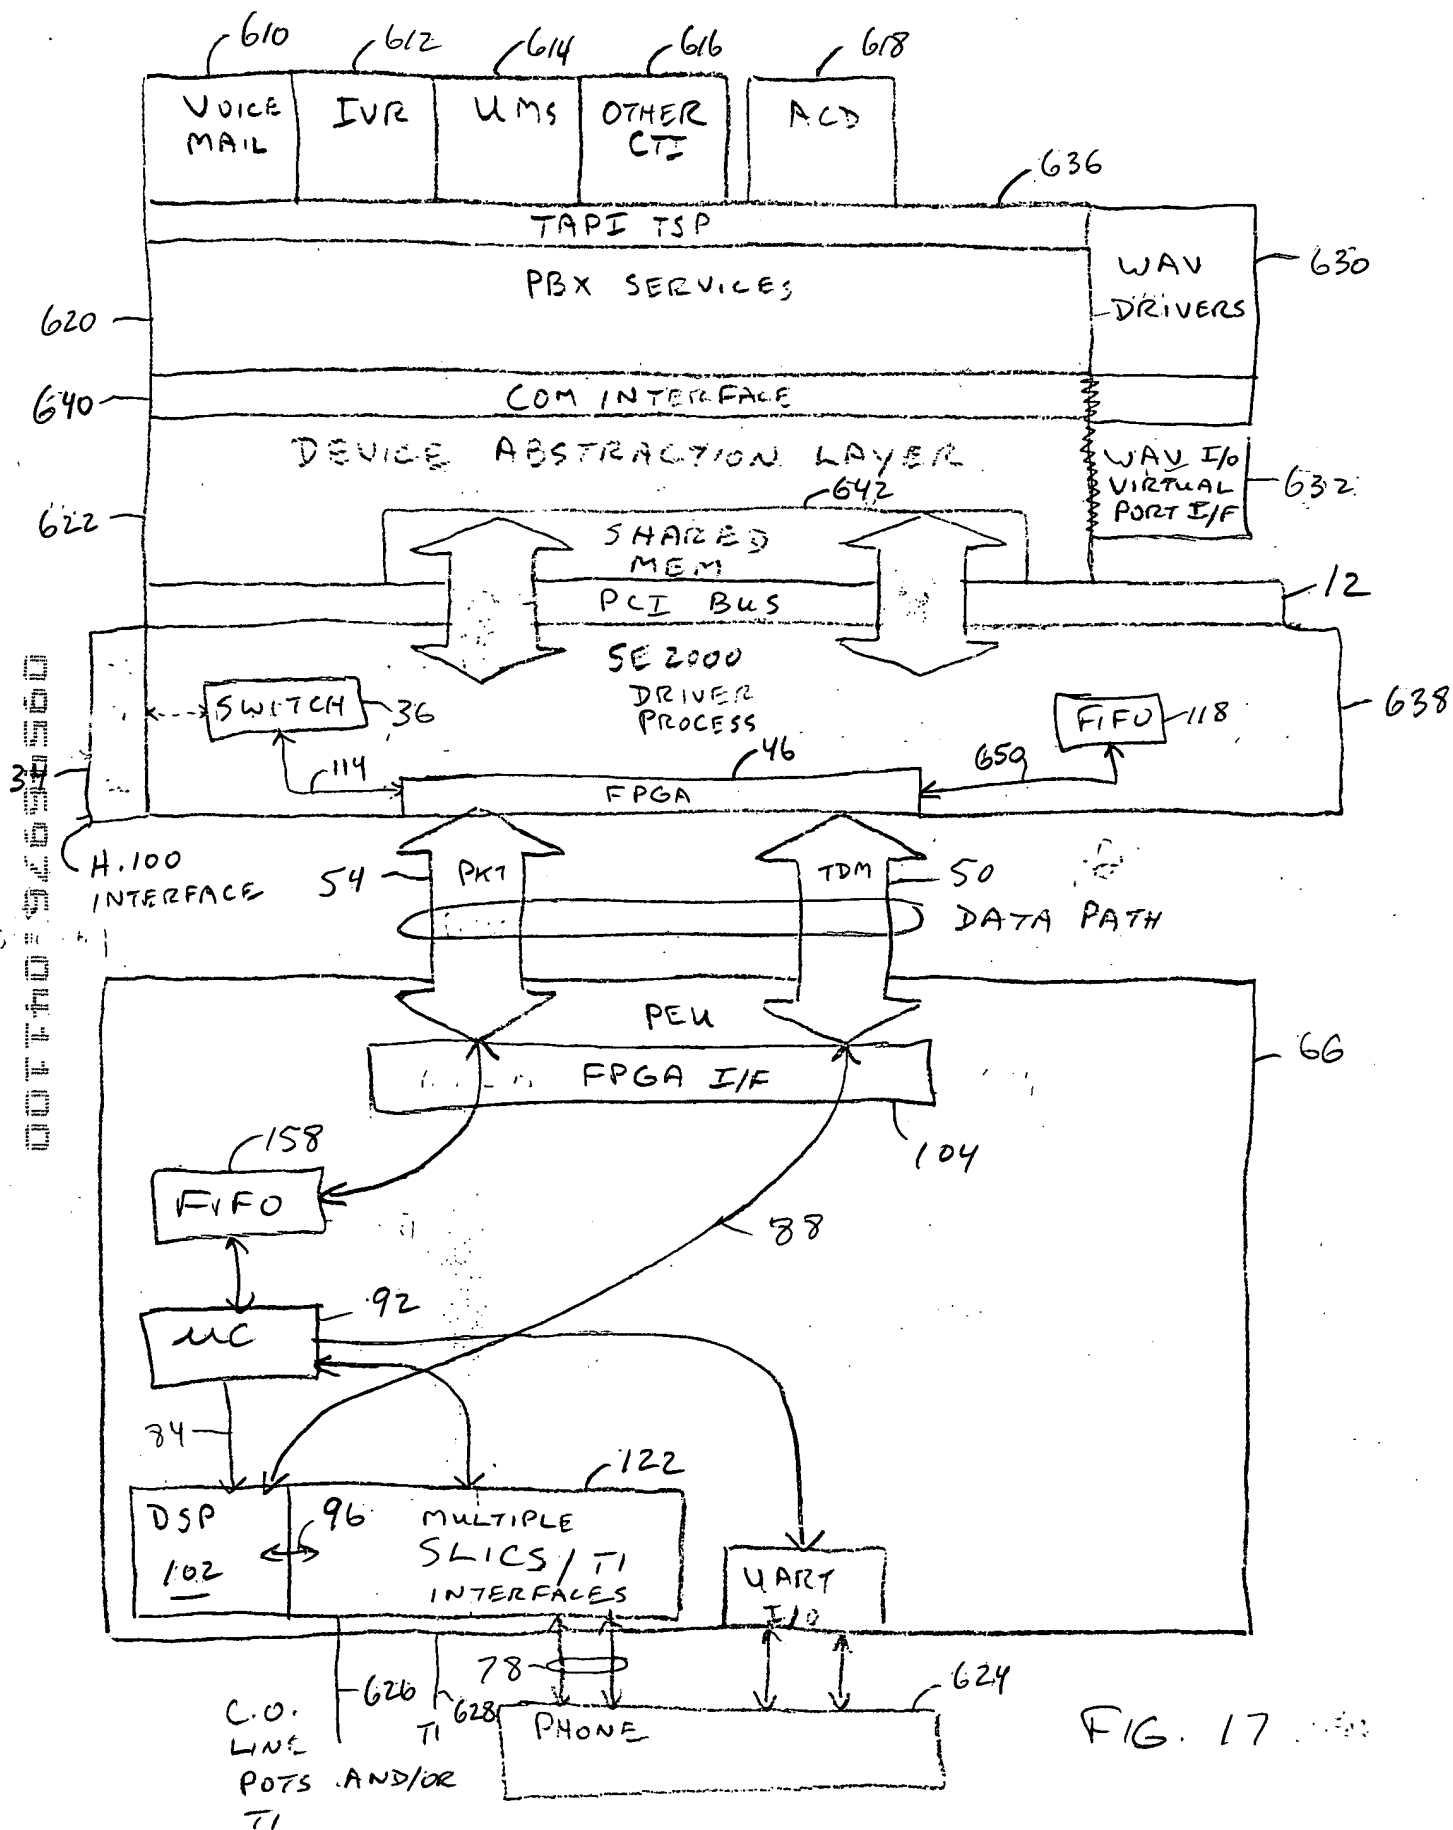 610
612
614
616
618
VOICE
MAIL
IVR
UMS
OTHER
CTI
ACD
636
TAPI TSP
PBX SERVICES
WAV
DRIVERS
630
620
COM INTERFACE
640
DEVICE ABSTRACTION LAYER
WAV I/O
VIRTUAL
PORT I/F
632
642
622
SHARED
MEM
PCI BUS
12
SE 2000
DRIVER
PROCESS
SWITCH
36
FIFO
118
638
114
46
650
FPGA
H.100
INTERFACE
54
PKT
TDM
50
DATA PATH
PEU
FPGA I/F
66
104
158
FIFO
88
92
µC
84
122
DSP
102
96
MULTIPLE
SLICS / T1
INTERFACES
UART
I/O
78
626
628
624
C.O.
LINE
POTS AND/OR
T1
T1
PHONE
FIG. 17